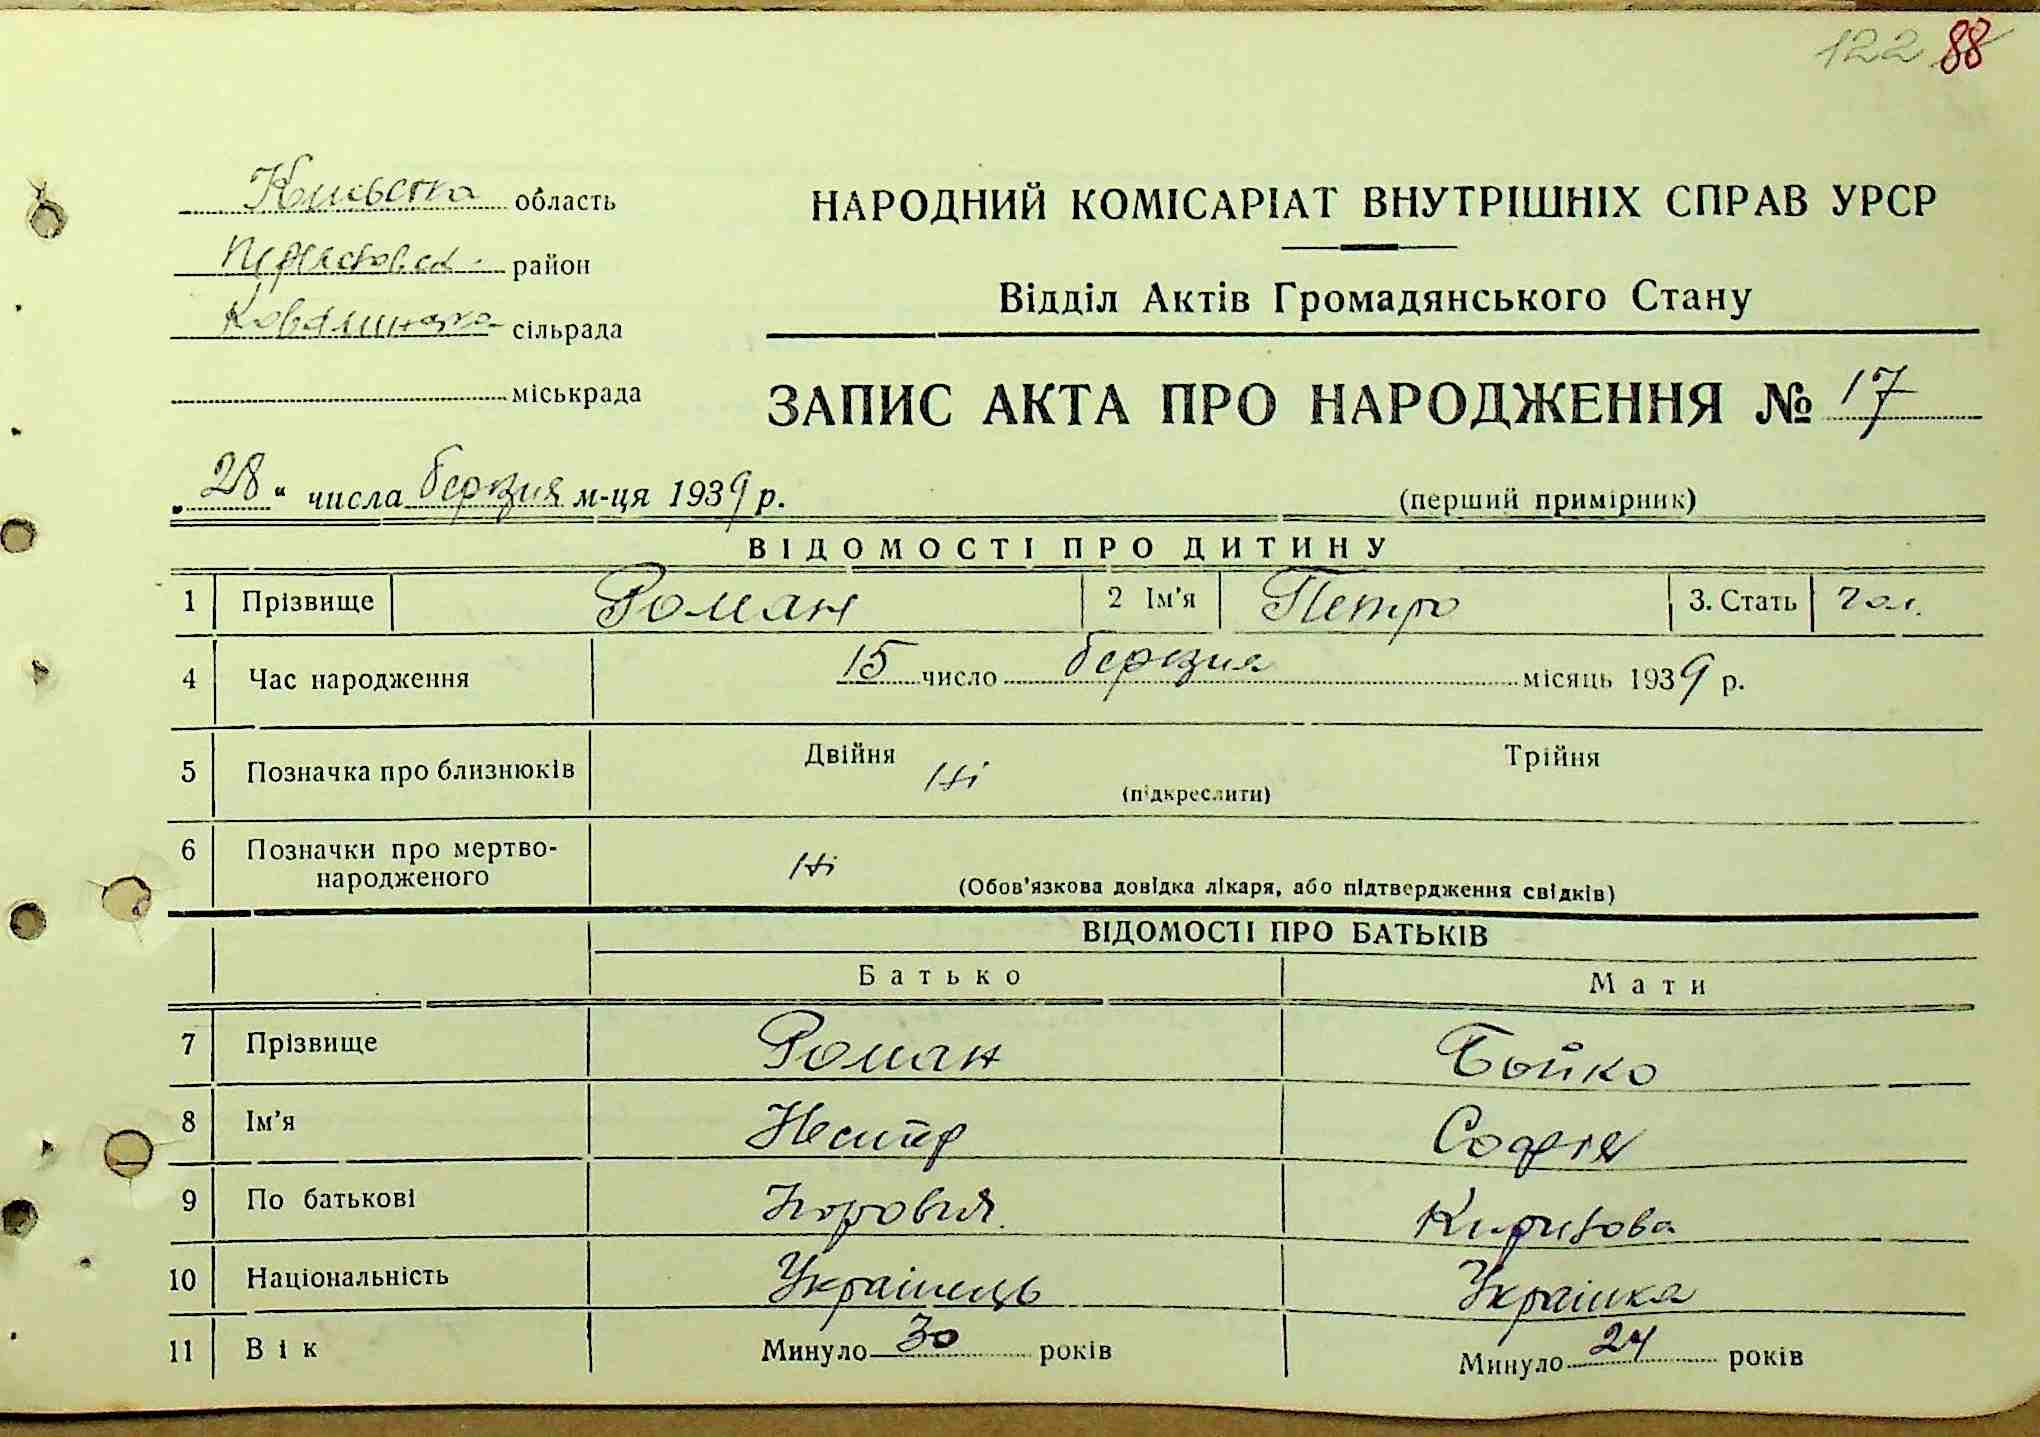 122 88
Київська область
район
сільрада
міськрада
НАРОДНИЙ КОМІСАРІАТ ВНУТРІШНІХ СПРАВ УРСР
Відділ Актів Громадянського Стану
ЗАПИС АКТА ПРО НАРОДЖЕННЯ № 17
„28“ числа березня м-ця 1939 р.
(перший примірник)
ВІДОМОСТІ ПРО ДИТИНУ
1 Прізвище Роман 2 Ім’я Петро 3. Стать чол.
4 Час народження 15 число березня місяць 1939 р.
5 Позначка про близнюків Двійня Ні Трійня
(підкреслити)
6 Позначки про мертво-
народженого Ні (Обов’язкова довідка лікаря, або підтвердження свідків)
ВІДОМОСТІ ПРО БАТЬКІВ
Батько Мати
7 Прізвище Роман Бойко
8 Ім’я Софія
9 По батькові
10 Національність Українець Українка
11 Вік Минуло 30 років Минуло 24 років